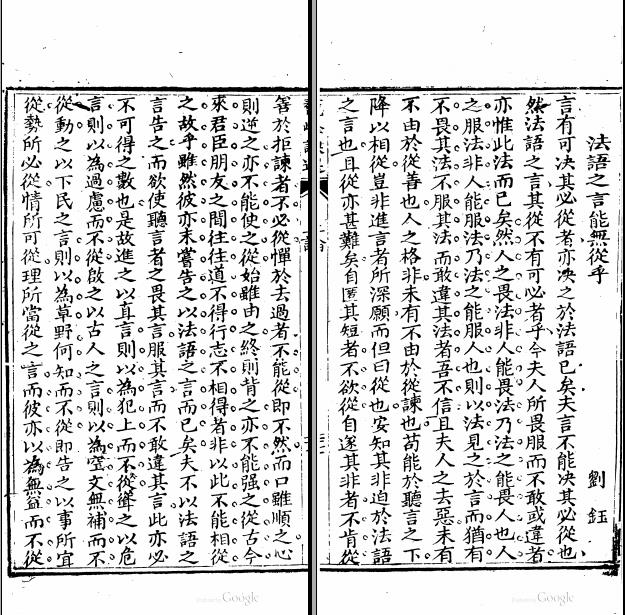 法語之言能無從乎
劉鈺
言有可決其必從者亦决之於法語已矣夫言不能决其必從也
然法語之言其從不有可必者乎今夫人所畏服而不敢或違者
亦惟此法而已矣然人之畏法非人能畏法乃法之能畏人也人
之服法非人能服法乃法之能服人也則以法見之於言而猶有
不畏其法不服其法而敢違其法者吾不信且夫人之去惡未有
不由於從善也人之格非未有不由於從諫也苟能於聽言之下
降以相從豈非進言者所深願而但曰從也安知其非迫於法語
之言也且從亦甚難矣自匿其短者不欲從自遂其非者不肯從
善於拒諫者不必從憚於去過者不能從即不然而口雖順之心
則逆之亦不能使之從始雖由之終則背之亦不能强之從古今
來君臣朋友之間往往道不得行志不相得者非以此不能相從
之故乎雖然彼亦未嘗告之以法語之言而已矣夫不以法語之
言告之而欲使聽言者之畏其言服其言而不敢違其言此亦必
不可得之數也是故進之以直言則以為犯上而不從聳之以危
言則以為過慮而不從啟之以古人之言則以為空文無補而不
從動之以下民之言則以為草野何知而不從即告之以事所宜
從勢所必從情所可從理所當從之言而彼亦以為無益而不從
Google
Google